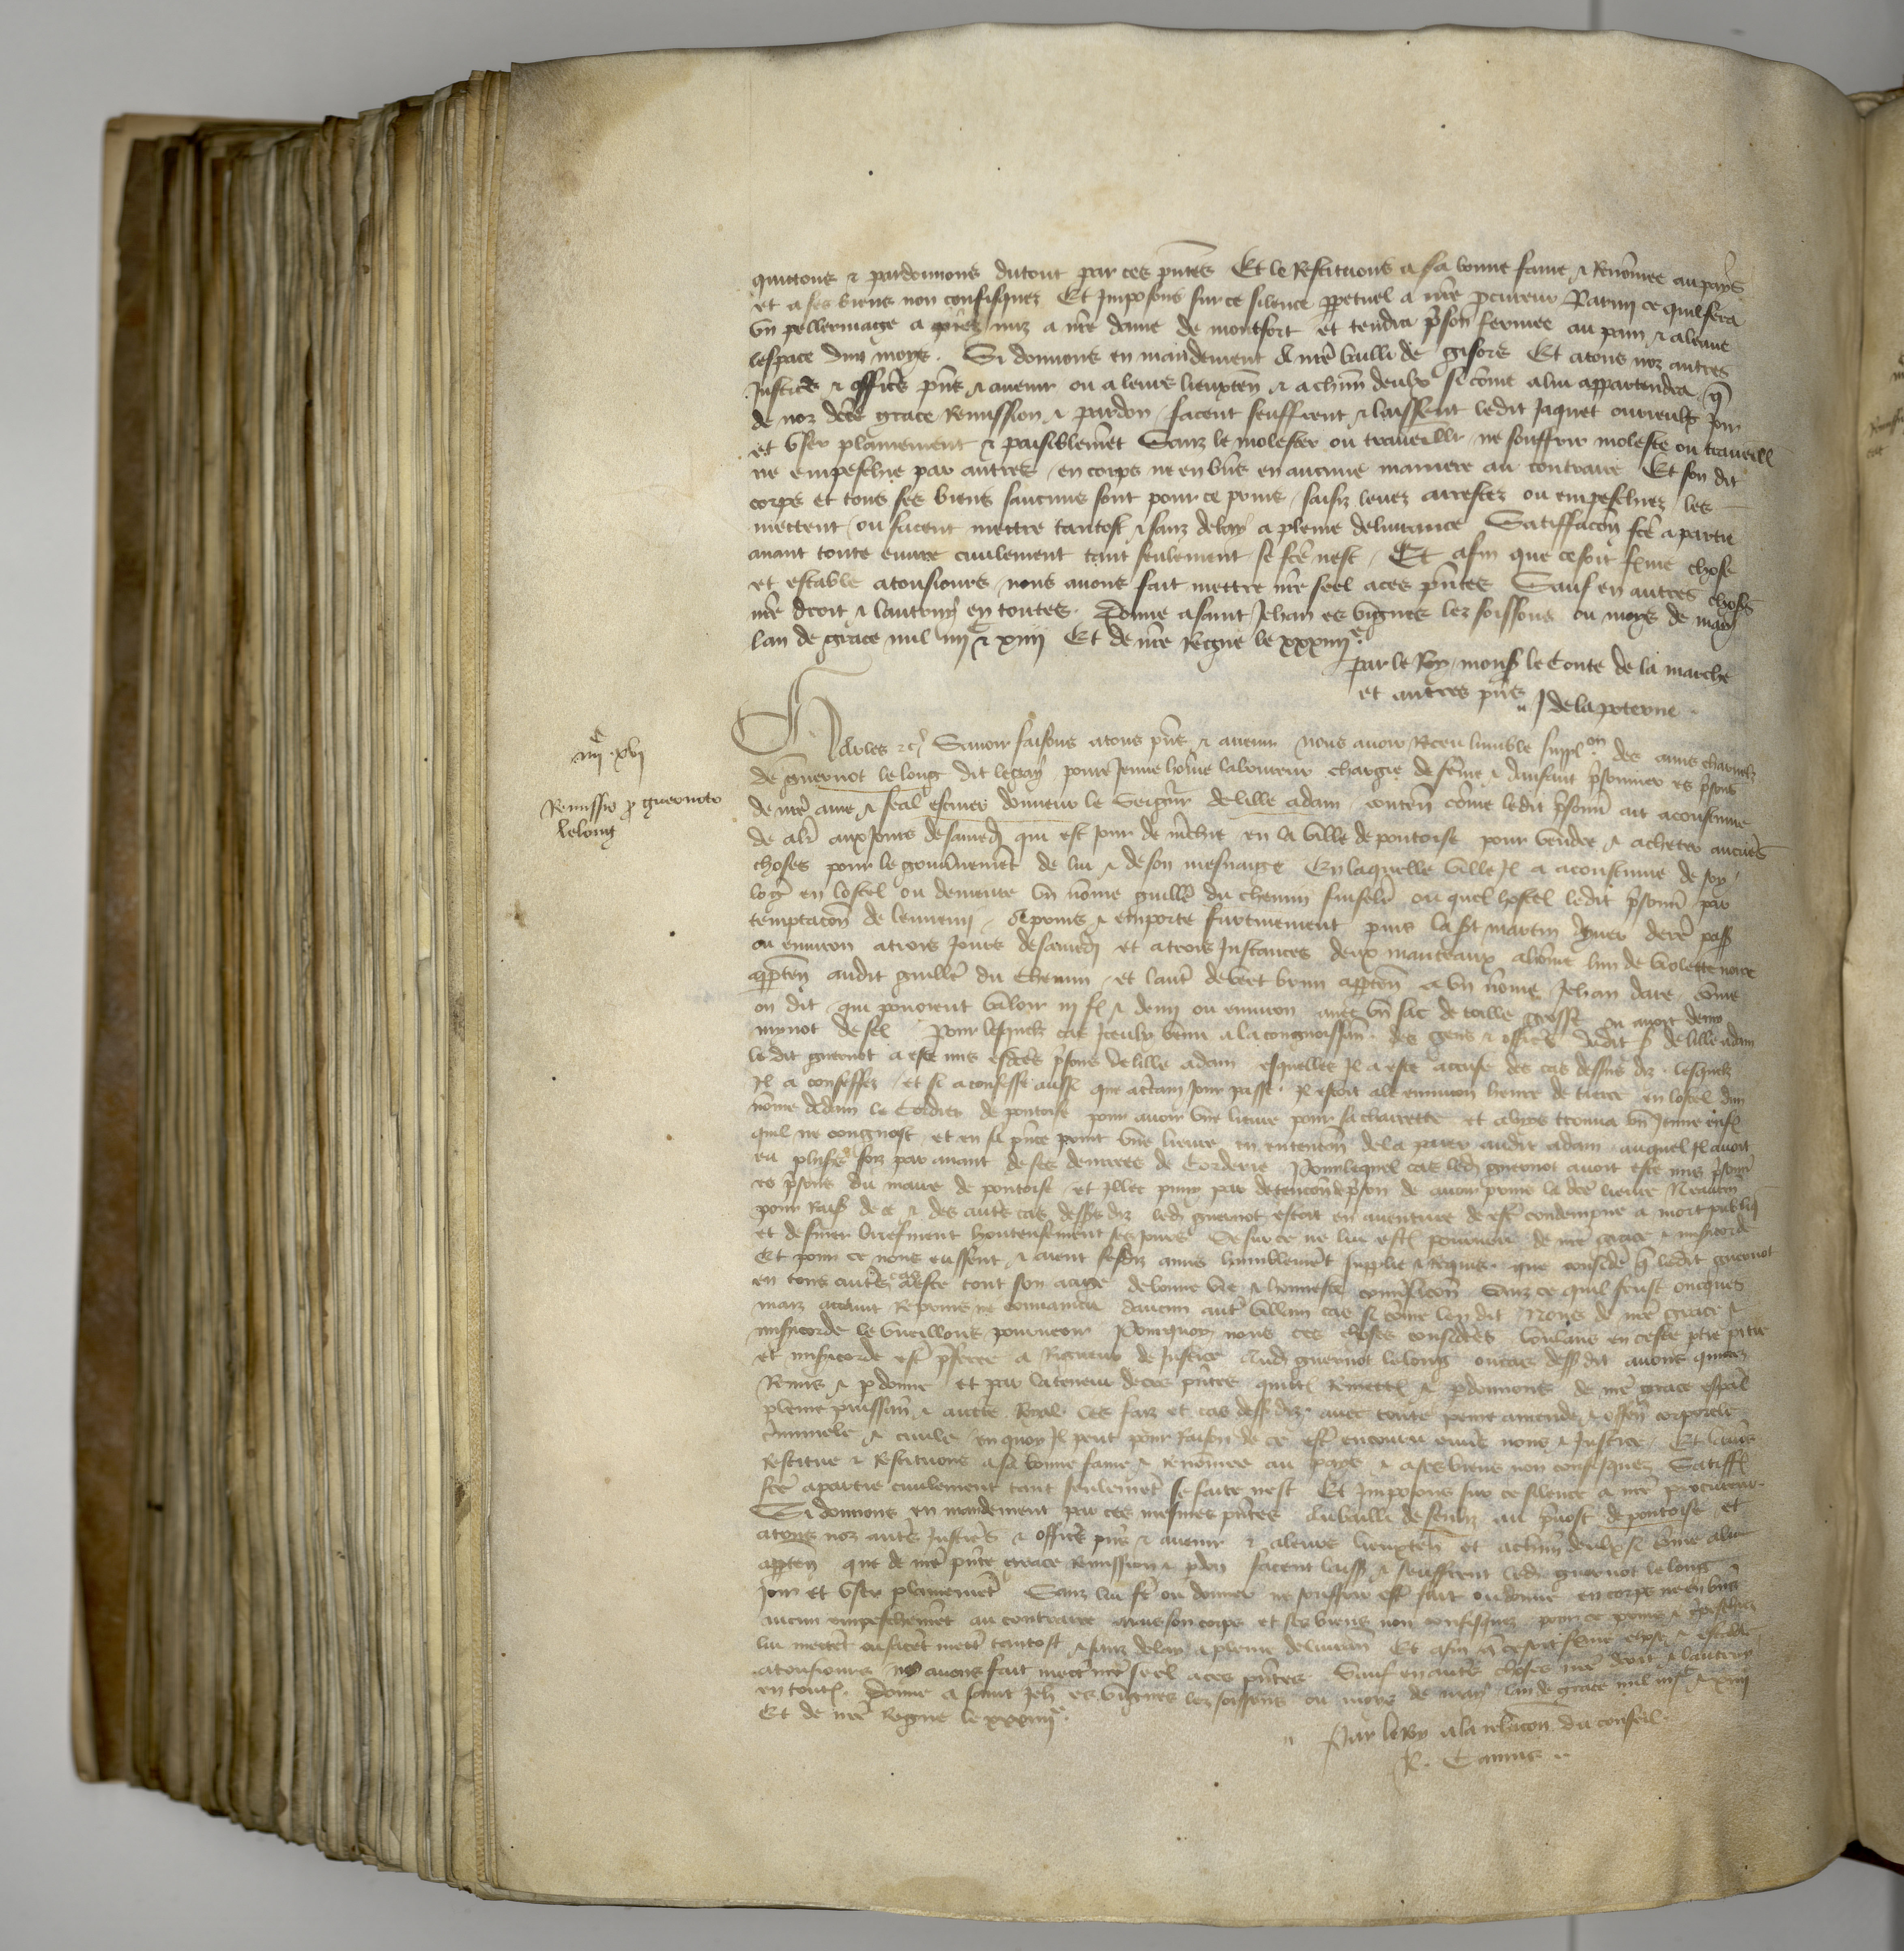 quittons & pardonnons dutout par ces pntes Et le Restituons a sa bonne fame & Renomee au pays
et a ses biens non confisquez Et Imposons sur ce silence ppetuel a nre pcureur Parmy ce quil fera
un pellerinage a piez nuz a nre dame de montfort et tendra pson fermee au pain & a leaue
lespace dun moys. Si donnons en mandement a nre bailli de gisors Et atous noz autres
Justiciers & officiers pns & avenir ou a leurs lieuxten & a chun deulx si come a lui appartendra q
de noz dce grace Remission & pardon facent seuffrent & laissent ledit Jaquet ioir
et user plainement & paisiblemet Sanz le molester ou traveillr ne souffrir moleste ou traveill
ne empeschie par autres en corps ne en bns en aucune maniere au contraire Et son dit
corps et tous ses biens saucuns sont pour ce prins saisiz levez arrestez ou empeschiez les
mettent ou facent mettre tantost & sanz delay a pleine delivrance Satiffacon fce apartie
avant toute euvre civilement tant seulement se fce nest Et afin que ce soit ferme chose
et estable atousiours nous avons fait mettre nre seel a ces pntes Sauf en autres choses
nre droit & lautruy en toutes. Donne a saint Jehan es vignes lez soissons ou moys de may
lan de grace mil iiiic & xiiii Et de nre Regne le xxxiiiie.
par le Roy mons le Conte de la marche
et autres pns J de la poterne
iiiic xvi
Remissio p guernoto
lelong
Charles &c Savoir faisons atous pns & avenir nous avoir Receu lumble supplon des amis charnelz
de guernot le long dit legay povre Jeune home laboureur chargie de feme & denfant psonnier es psons
de nre ame & feal escuier donneur le seigneur de lille adam conten come ledit psonn ait acoustume
de aler aux Jours de samedi qui est Jour de mchie en la ville de pontoise pour vendre & acheter aucues
choses pour le gouvnemet de lui & de son mesnaige En laquelle ville Il a acoustume de soy
logr en lostel ou demeure un nome guille du chemin ou quel hostel ledit psonn par
temptacon de lennemy a prins & emporte furtivement puis la st martin yver derre pass
ou environ a trois Jours de samedi et a trois Instances deux manteaux a home lun de violette noire
apten audit guille du Chemin et lautr de vert brun apten a un nome Jehan dare come
on dit qui povoient valoir iii fs & demi ou environ avec un sac de toille grosse ou avoit demy
mynot de sel Pour lesquelz cas Iceulx venu a la congnoissan des gens & officiers dudit s de lille adam
le dit guernot a este mis esdces psons de lille adam esquelles Il a este accuse des cas dessus diz lesquelz
Il a confessez et si a confesse aussi que a certain Jour passe Il estoit ale environ heure de tierce en lostel dun
nome dadam le Cordier de pontoise pour avoir une lieure pour sa charrette et alors trouva un Jeune enfs
quil ne congnost et en sa pnce print une lieure en entencon de la paier audit adam auquel Il avoit
eu plusrs foiz par avant de ses denrees de Corderie Pour lequel cas ledit guernot avoit este mis psonn
es psons du maire de pontoise et Illec puny par detencon de pson de avoir prins la dce lieure Neantm
pour Rais de ce & des autres cas dessus diz ledit guernot estoit en aventure de estr condempne a mort publiq
et de finer briefment honteusement ses Jours Se sur ce ne lui estoit pourveu de nre grace & misicorde
Et pour ce nous eussent & aient sesdiz amis humblemet supplie & Requis que considere q ledit guernot
en tous autres cas a este tout son aage de bonne vie & honneste convsacon Sanz ce quil feust oncques
maiz attaint Reprins ne convaincu daucun autr villain cas si come len dit Nous de nre grace &
misicorde le vueillons pourveoir Pourquoy nous ces choses considees voulans en ceste ptie pitie
et misicorde estr pferee a Rigueur de Justice Audit guernot le long ou cas dess dit avons quictez
Remis & pdonne et par la teneur de ces pntes quictos Remettos & pdonnons de nre grace espal
pleine puissan & aucte Royal les faiz et cas dess diz avec toute peine amende & offen corporele
criminele & civile en quoy Il peut pour raison de ce estr encouru envers nous & Justice Et lavos
Restitue & Restituons a sa bonne fame & renomee au pays & a ses biens non confisquez Satiff
fce apartie civilement tant seulemet se faite nest Et Imposons sur ce silence a nre procureur
Si donnons en mandement par ces mesmes pntes Au bailli de senliz au pvost de pontoise et
atous noz autres Justiciers & officiers pns & avenir & a leurs lieuxten et achun deulx si come a lui
apten que de nre pnte grace Remission & pdon facent laiss & seuffrent ledit guernot le long
Joir et user plainemet Sanz lui fe ou donner ne souffrir estr fait ou donne en corps ne en bns
aucun empeschemet au contraire mais son corps et ses biens non confisquez pour ce prins & empeschiez
lui mettet ou facet mettr tantost & sanz delay a pleine delivran Et afin q ce soit ferme chose & estable
atousiours no avons fait mettr nre seel a ces pntes Sauf en autrs choses nre droit & lautruy
en touts. Donne a saint Jeh es vignes lez soissons ou moys de may lan de grace mil iiiic & xiiii
Et de nre Regne le xxxiiiie.
Par le Roy a la relacon du conseil
R. Camus